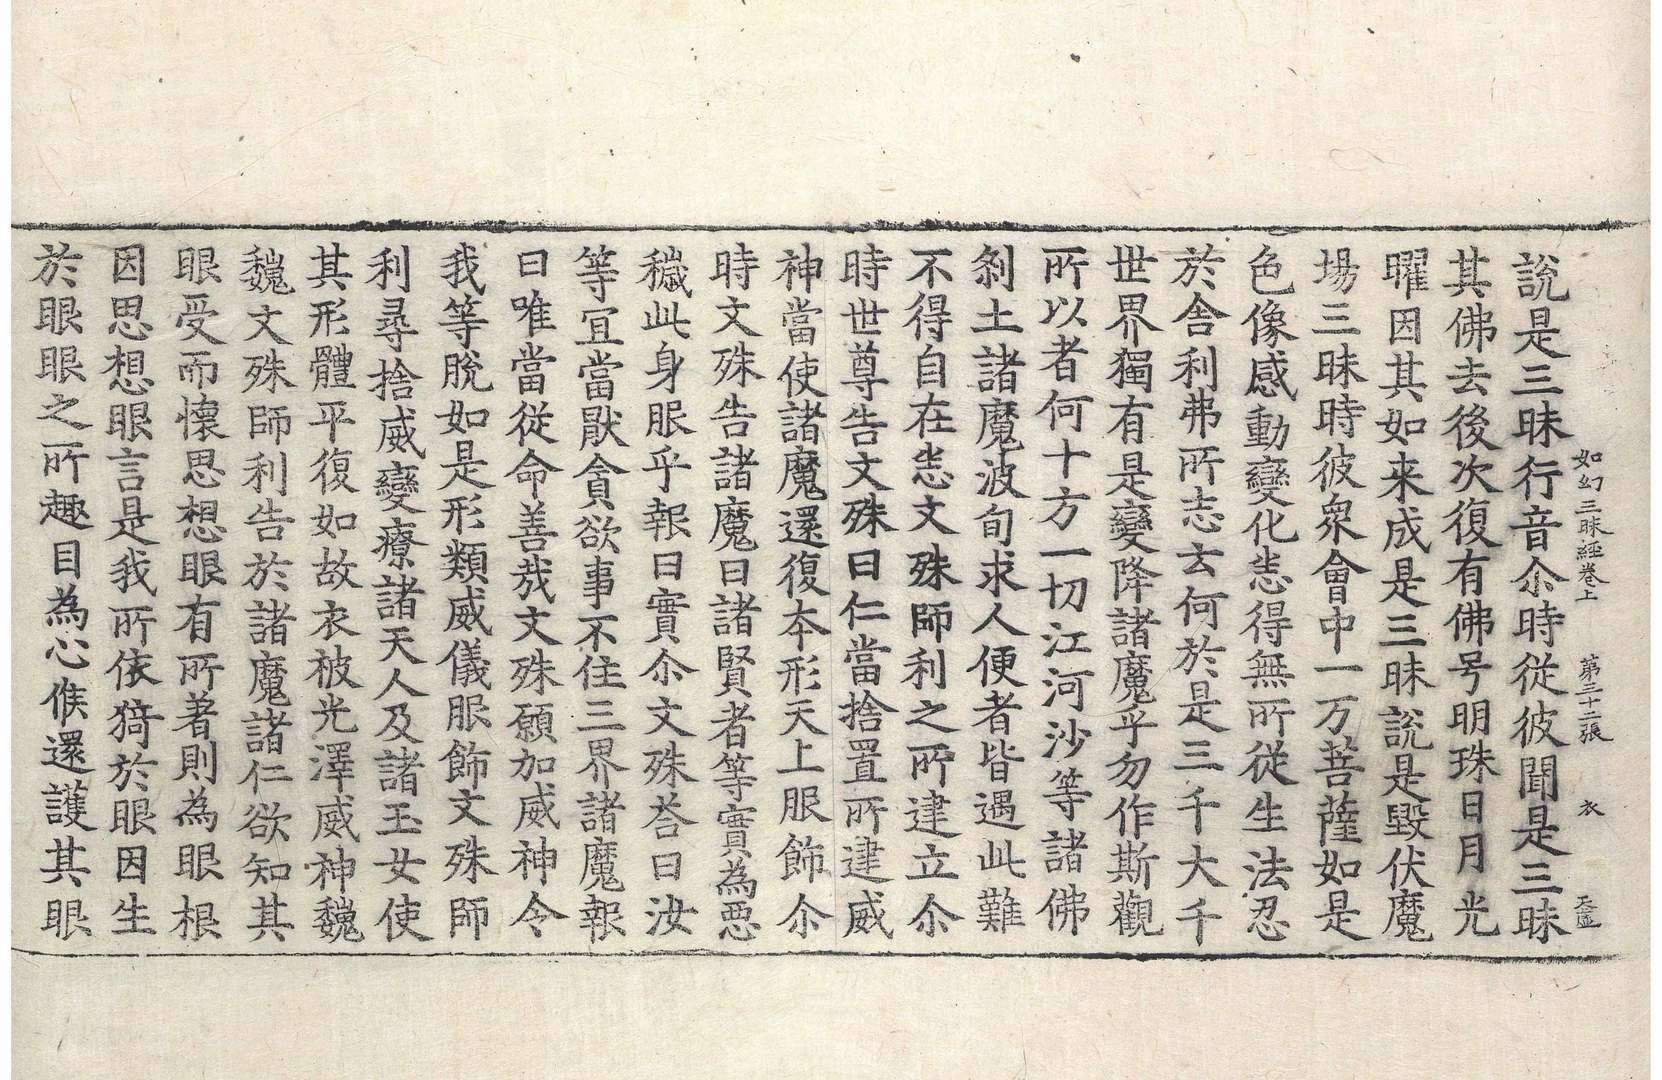 如幻三昧經卷上　第三十二張　衣
說是三昧行音尒時從彼聞是三昧
其佛去後次復有佛号明珠日月光
曜因其如来成是三昧說是毀伏魔
場三昧時彼衆會中一万菩薩如是
色像感動變化悉得無所從生法忍
於舍利弗所志云何於是三千大千
世界獨有是變降諸魔乎勿作斯觀
所以者何十方一切江河沙等諸佛
剎土諸魔波旬求人便者皆遇此難
不得自在悉文殊師利之所建立尒
時世尊告文殊曰仁當捨置所建威
神當使諸魔還復本形天上服飾尒
時文殊告諸魔曰諸賢者等實為惡
穢此身服乎報曰實尒文殊荅曰汝
等冝當猒貪欲事不住三界諸魔報
曰唯當從命善哉文殊願加威神令
我等脫如是形類威儀服飾文殊師
利尋捨威變療諸天人及諸玉女使
其形體平復如故衣被光澤威神巍
巍文殊師利告於諸魔諸仁欲知其
眼受而懷思想眼有所著則為眼根
因思想眼言是我所依猗於眼因生
於眼眼之所趣目為心候還護其眼